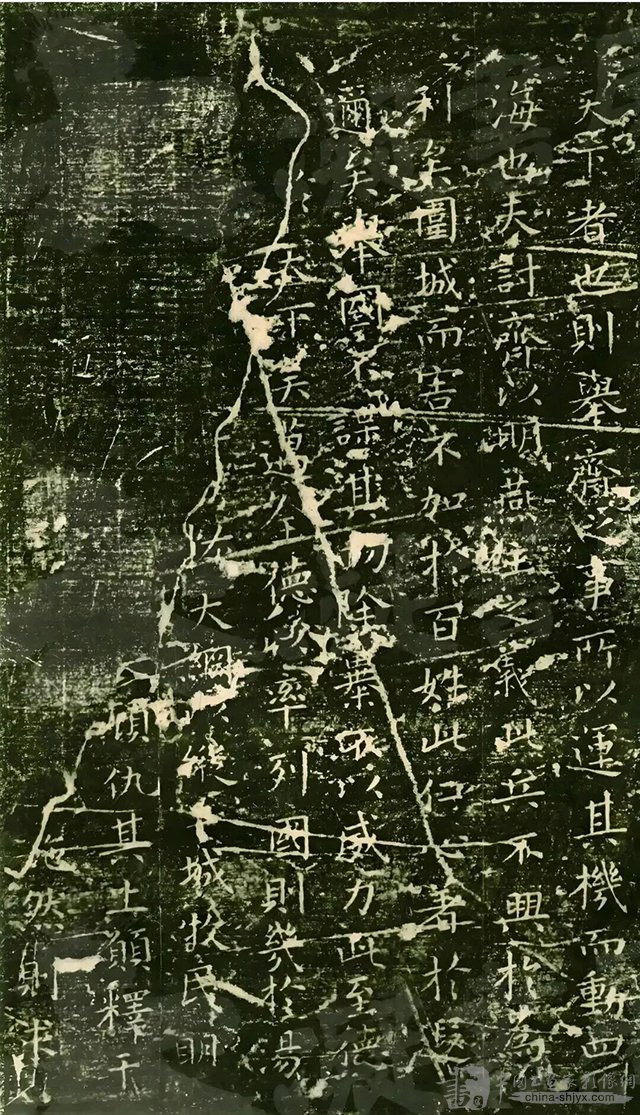 天下者也則舉齊之事所以運其機而動四
海也夫討齊以明燕主之義此兵不興於為
利矣圍城而害不加於百姓此仁心著於遐
邇矣舉國不謀其功除暴不以威力此至德
於天下矣邁全德以率列國則幾於湯
大綱以縱二城牧民明
顧仇其上願釋干
施然則求
china-shjyx.com